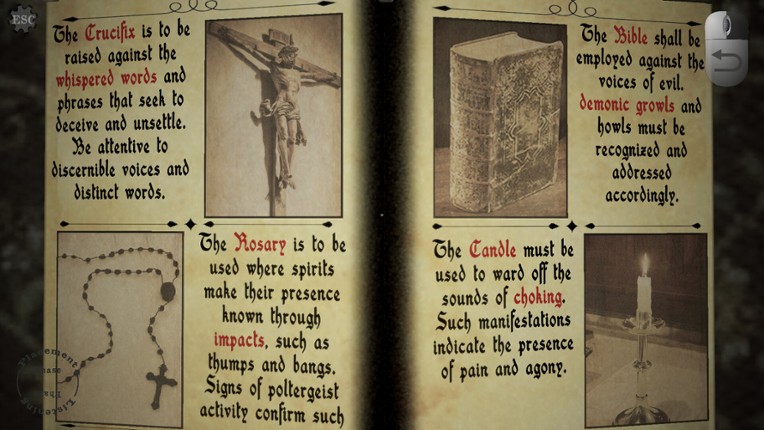 ESC
The Crucifix is to be
raised against the
whispered words and
phrases that seek to
deceive and unsettle.
Be attentive to
discernible voices and
distinct words.
The Rosary is to be
used where spirits
make their presence
known through
impacts, such as
thumps and bangs.
Signs of poltergeist
activity confirm such
The Bible shall be
employed against the
voices of evil.
demonic growls and
howls must be
recognized and
addressed
accordingly.
The Candle must be
used to ward off the
sounds of choking.
Such manifestations
indicate the presence
of pain and agony.